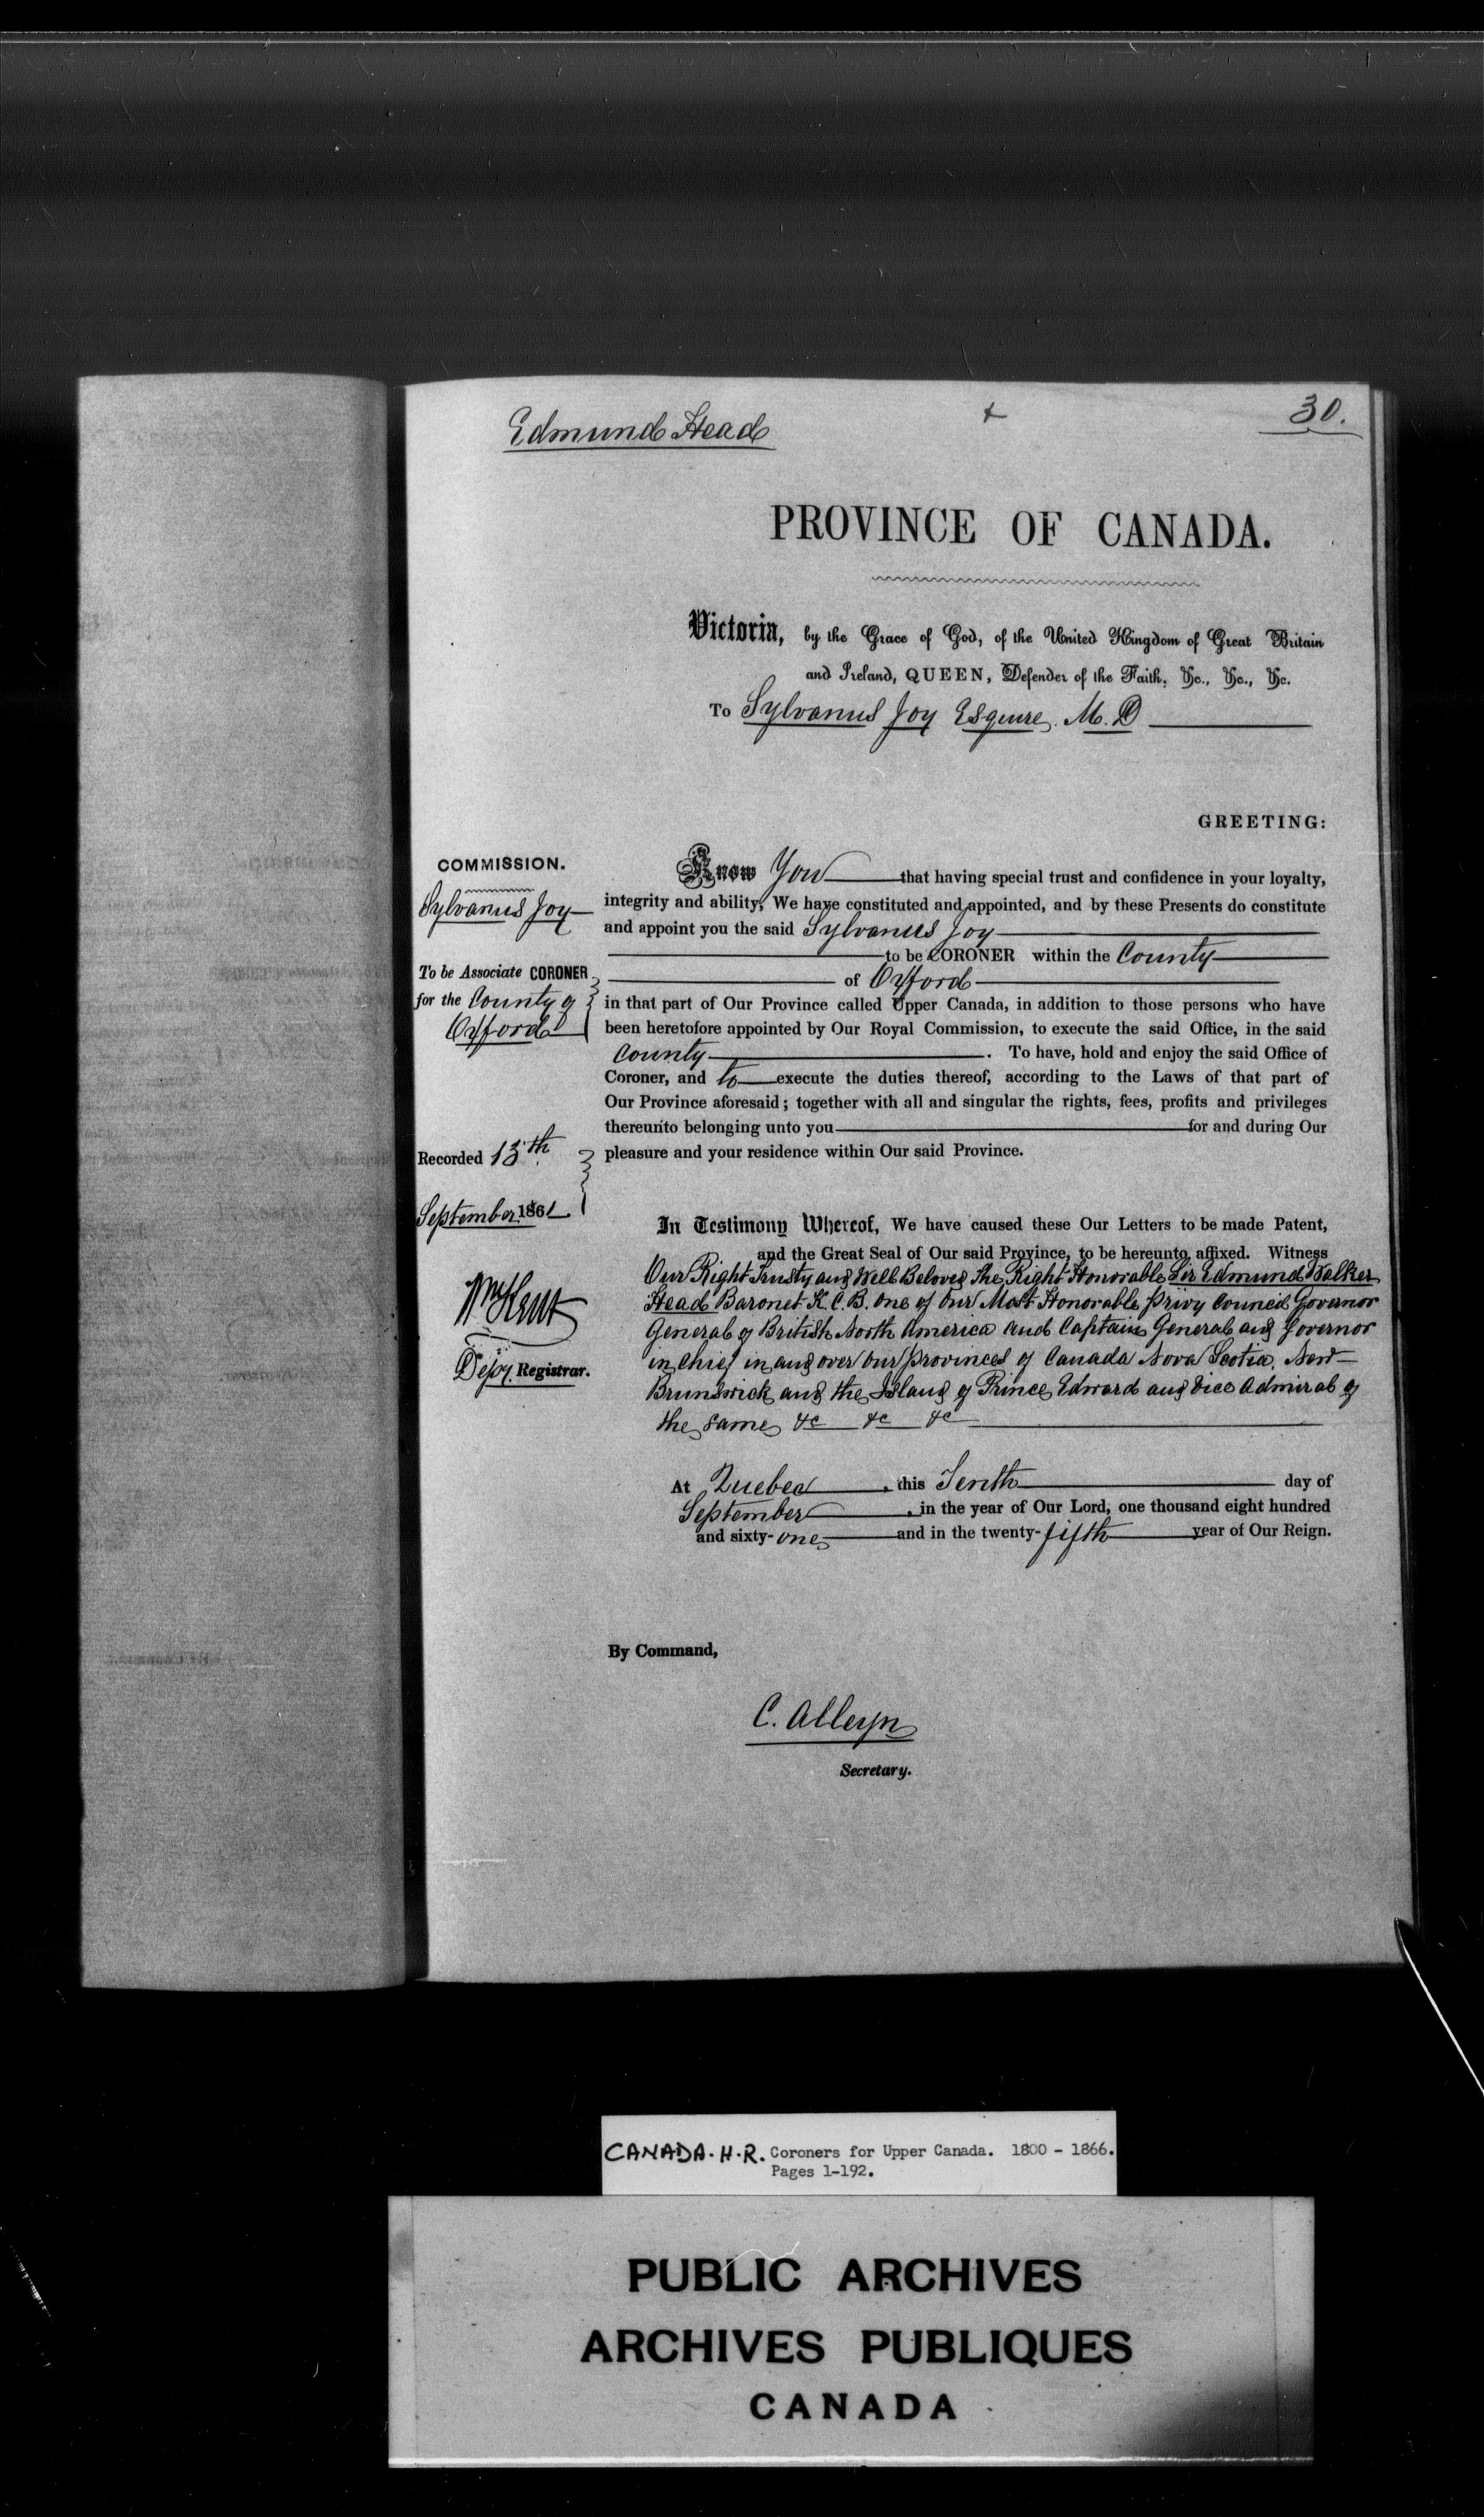 Edmund Head
+
30.
PROVINCE OF CANADA.
Victoria, by the Grace of God, of the United Kingdom of Great Britain
and Ireland, QUEEN, Defender of the Faith, &c., &c., &c.
To Sylvanus Joy Esquire, M.D
GREETING:
COMMISSION.
Sylvanus Joy
To be Associate CORONER
for the County of
Oxford
Recorded 13th
September 1861.
Wm Kent
Depy. Registrar.
Know You that having special trust and confidence in your loyalty,
integrity and ability, We have constituted and appointed, and by these Presents do constitute
and appoint you the said Sylvanus Joy
to be CORONER within the County
of Oxford
in that part of Our Province called Upper Canada, in addition to those persons who have
been heretofore appointed by Our Royal Commission, to execute the said Office, in the said
County. To have, hold and enjoy the said Office of
Coroner, and to execute the duties thereof, according to the Laws of that part of
Our Province aforesaid; together with all and singular the rights, fees, profits and privileges
thereunto belonging unto you for and during Our
pleasure and your residence within Our said Province.
In Testimony Whereof, We have caused these Our Letters to be made Patent,
and the Great Seal of Our said Province, to be hereunto affixed. Witness
Our Right Trusty and Well Beloved The Right Honorable Sir Edmund Walker
Head Baronet K.C.B. one of Our Most Honorable Privy Council Governor
General of British North America and Captain General and Governor
in Chief in and over Our Provinces of Canada Nova Scotia, New-
Brunswick and the Island of Prince Edward and Vice Admiral of
the same &c &c &c
At Quebec, this Tenth day of
September, in the year of Our Lord, one thousand eight hundred
and sixty-one and in the twenty-fifth year of Our Reign.
By Command,
C. Alleyn
Secretary.
CANADA. H.R. Coroners for Upper Canada. 1800 - 1866.
Pages 1-192.
PUBLIC ARCHIVES
ARCHIVES PUBLIQUES
CANADA